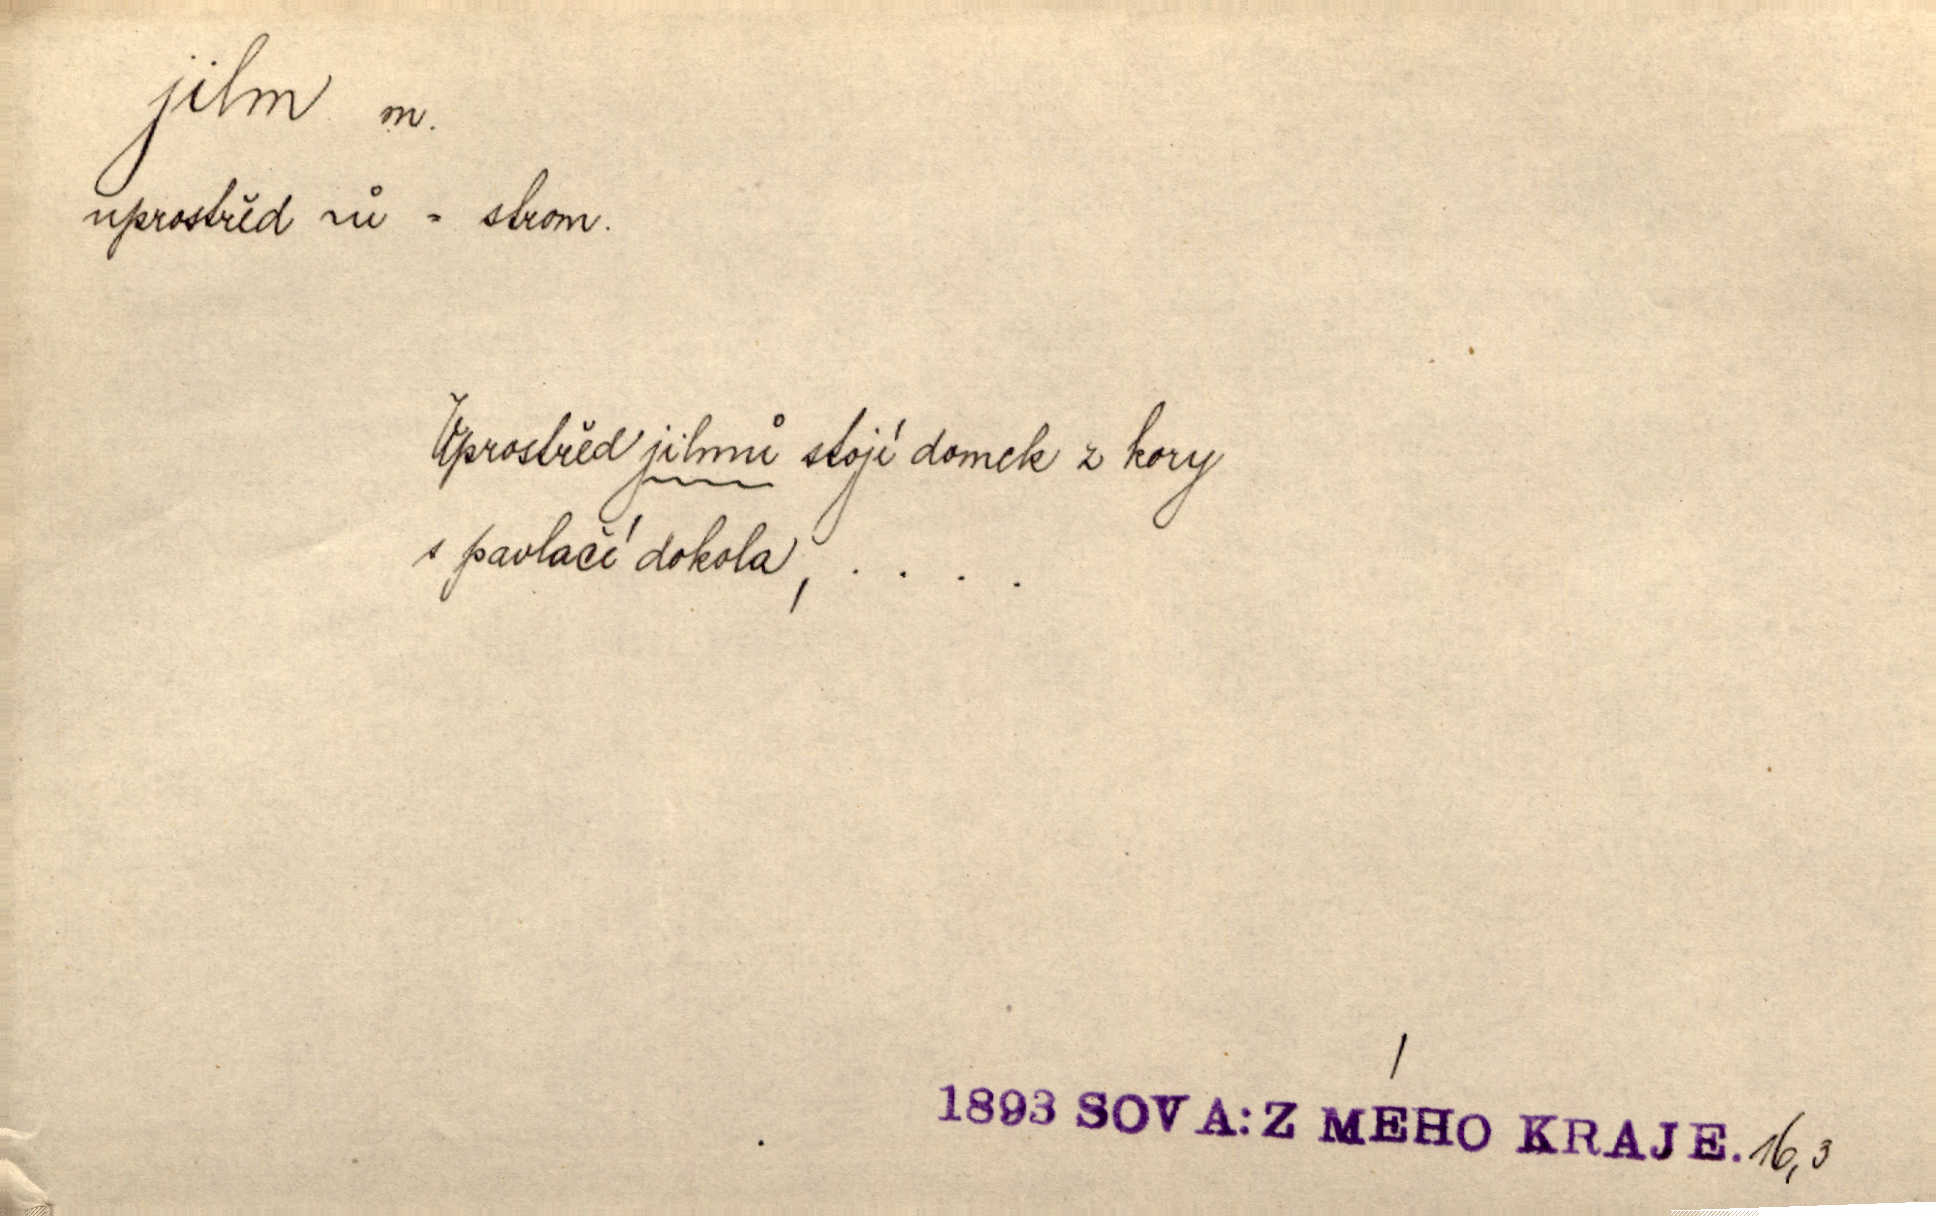 jilm m.
uprostřed ~ů - strom.
Uprostřed jilmů stojí domek z kory
s pavlačí dokola, . . . .
1893 SOVA: Z MÉHO KRAJE. 16,3